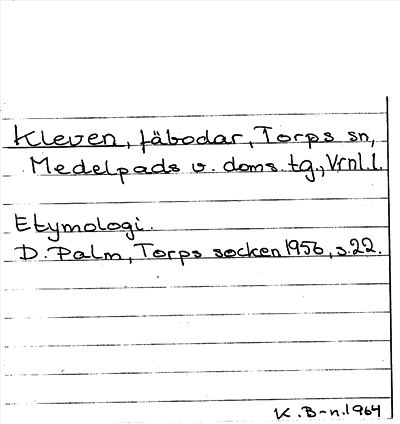 Kleven, fäbodar, Torps sn,
Medelpads v. doms. tg., Vrnl. l.
Etymologi.
D. Palm, Torps socken 1956, s. 22.
K. B-n. 1964